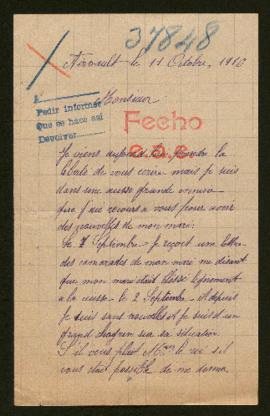 37848
le 11 Octobre, 1916
Monsieur
Pedir informes
Que se hace así
Devolver
Fecho
Je viens la
de vous mais je suis
dans une aussi grande
que j'ai recours à vous pour avoir
des nouvelles de mon mari.
Le 7 Septembre je reçois une lettre
des camarades de mon mari me disant
que mon mari était blessé légèrement
à la cuisse le 2 Septembre et depuis
je suis sans nouvelles et je suis d'un
grand chagrin sur sa situation.
S'il vous plait le roi s'il
vous était possible de me donner